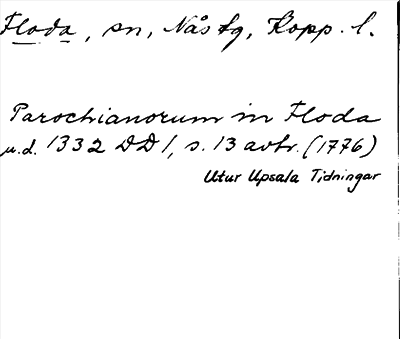 Floda, sn, Nås tg, Kopp. l.
Parochianorum in Floda
u.d. 1332 DD 1, s. 13 avtr. (1776)
Utur Upsala Tidningar